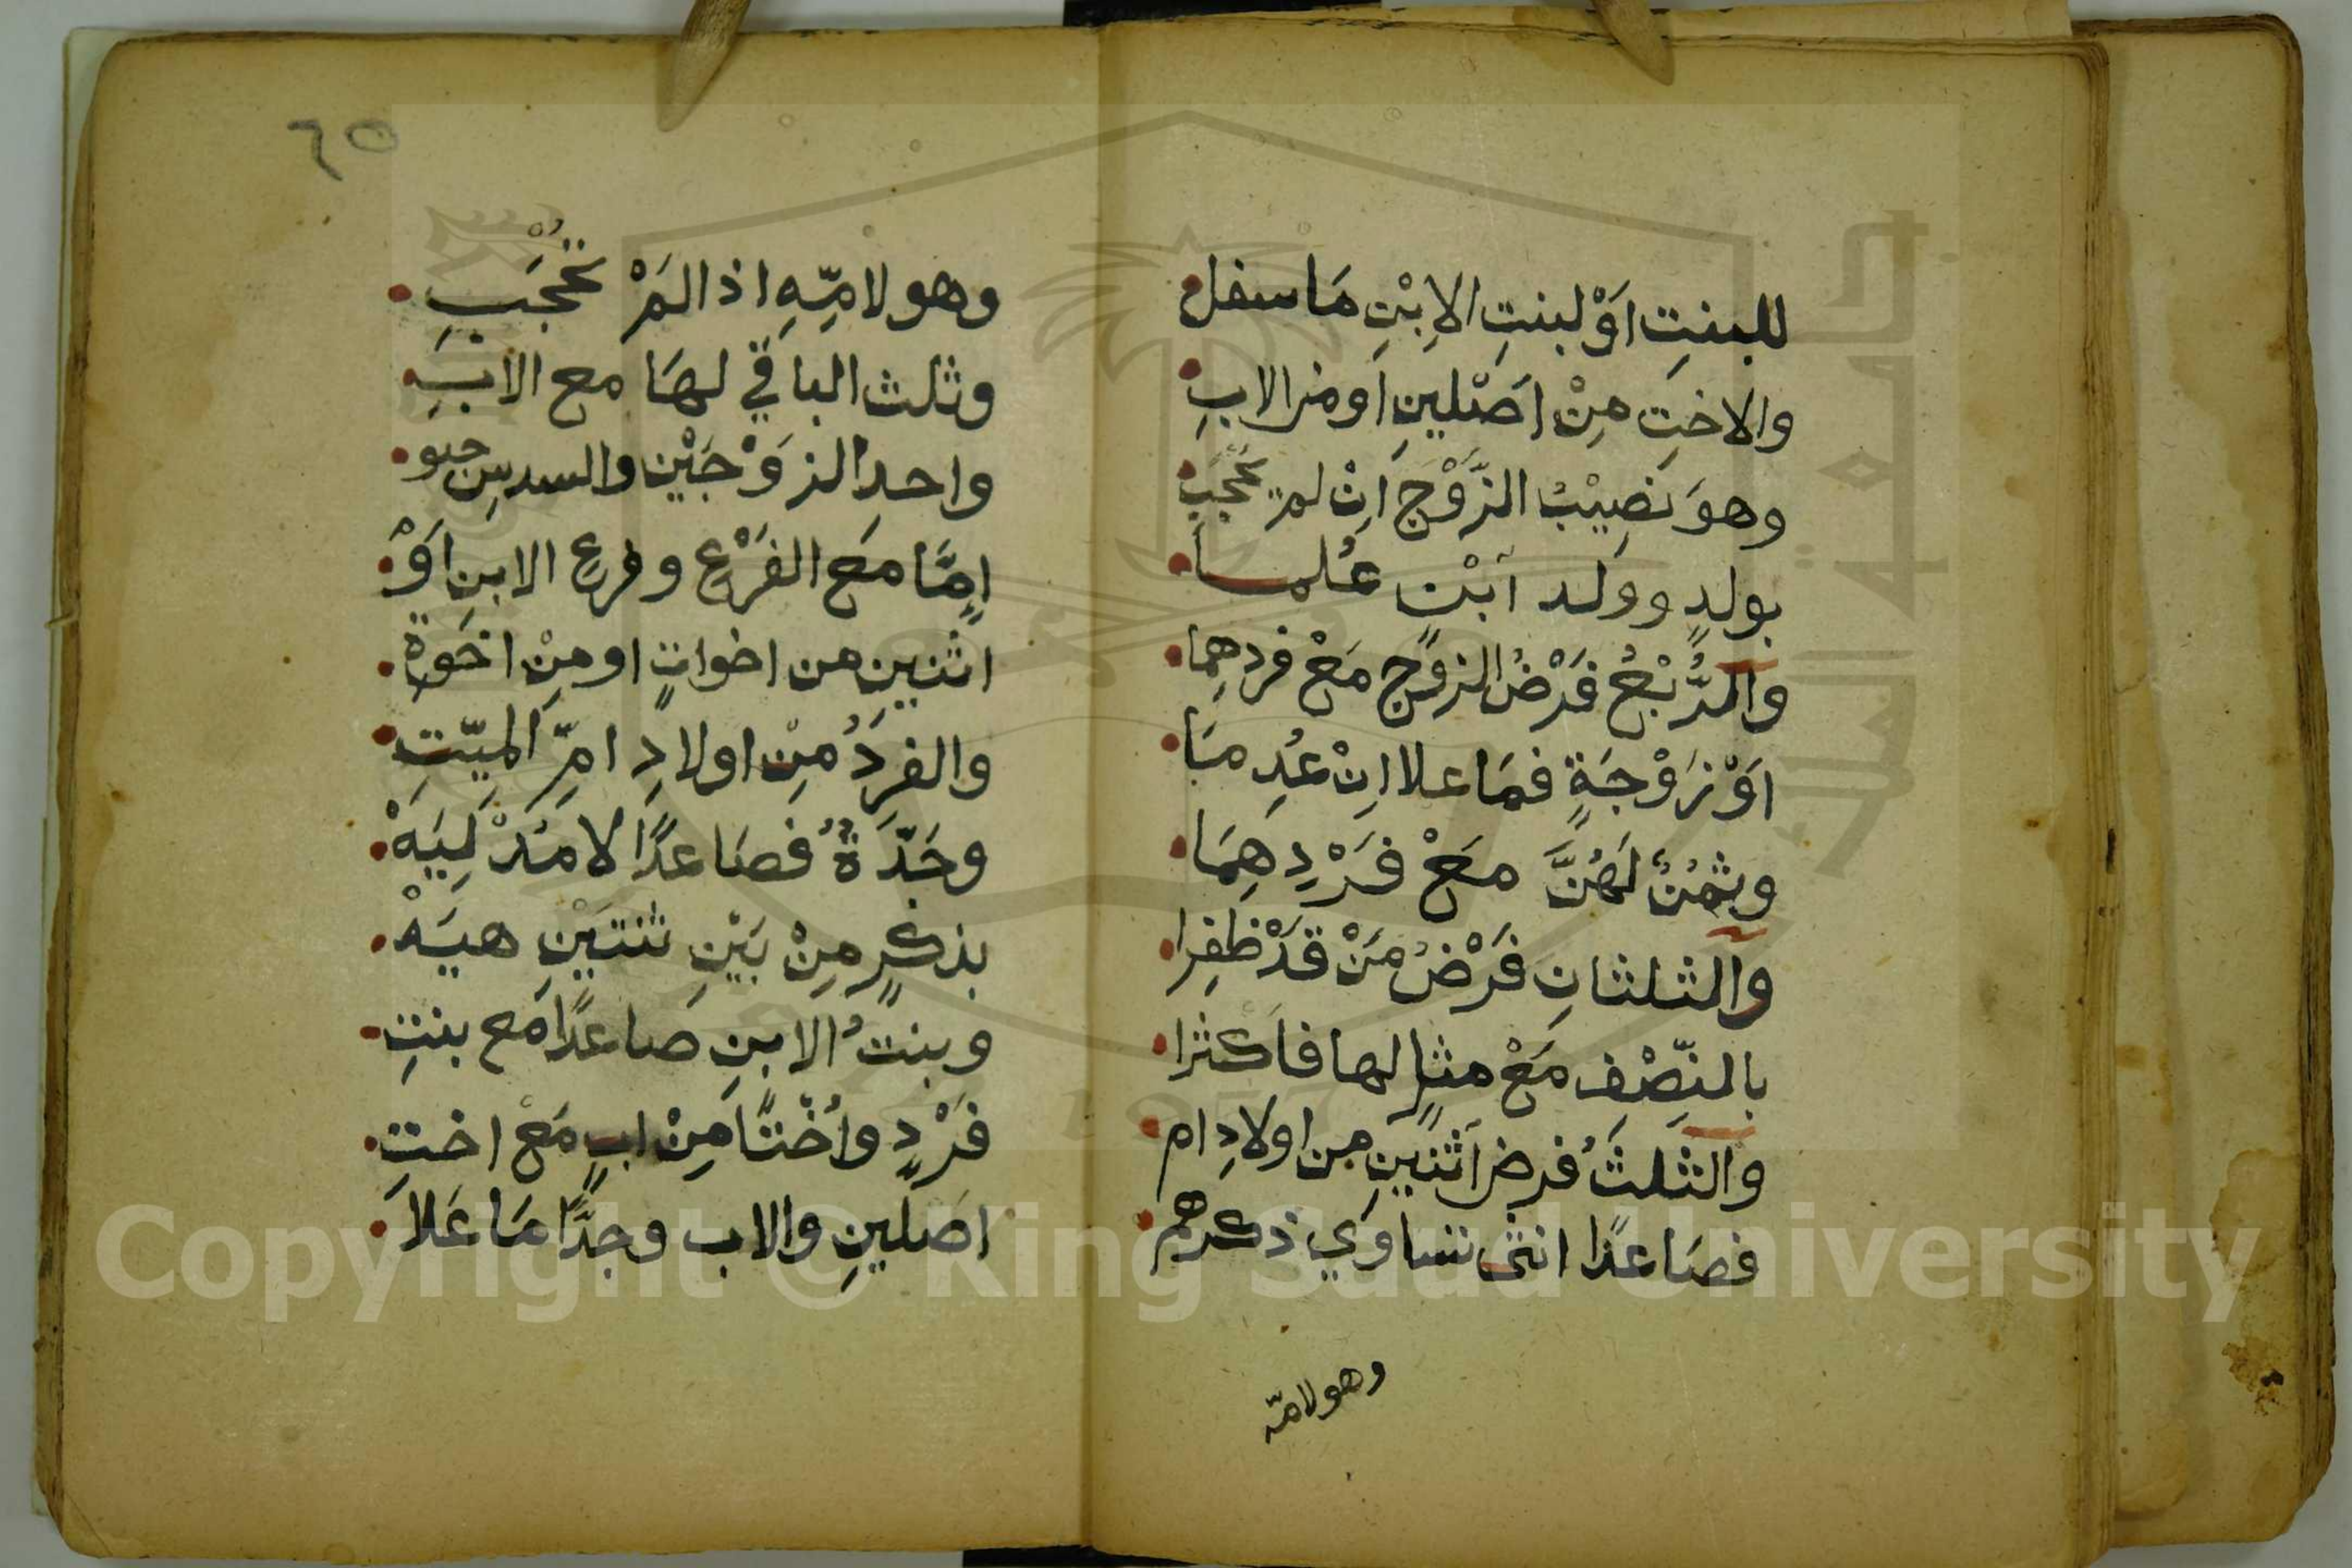 للبنتِ اَوْ لبنتِ الاِبْنِ مَا سفل
والاختِ مِنْ اَصْلينِ اَو من الابِ
وهوَ نصِيْبُ الزَّوْجِ اِنْ لم يحْجَبِ
بولدٍ وولد ابْنٍ عُلما
والرُّبْعُ فَرْضُ الزوْجِ مَعْ فردِهِما
اَوْ زَوْجَةٍ فمَا علا اِنْ عُدِمَا
وثمُنٌ لَهُنَّ مَعْ فَرْدِهِمَا
والثلثانِ فَرْضُ مَنْ قَدْ ظفِرا
بالنِّصْفِ مَعْ مثلٍ لها فاَكثرا
والثلثُ فرض اثنينِ من اولادِ ام
فصَاعدًا انثى تساوي ذكرهم
وهو لامّه
٦٥
وهو لامِّهِ اذا لمْ تُحْجَبِ
وثلث الباقي لهَا مع الابِ
واحدِ الزوْجَيْنِ والسدسِ حبو
اِمَّا مَع الفَرْعِ وفرعِ الابنِ اَوْ
اثنينِ من اخواتٍ او مِنْ اخَوةِ
والفردُ مِنْ اولادِ امِّ الميّتِ
وجَدَّةٌ فصَاعدًا لا مُدْلِيَهْ
بذكرٍ مِنْ بَيْنِ ثنتَيْنِ هيَهْ
وبنتُ الابنِ صاعدًا مَع بنتِ
فَرْدٍ واُخْتًا مِنْ ابٍ مَعْ اختِ
اصلينِ والاب وجدًّا مَا عَلاَ
Copyright © King Saud University